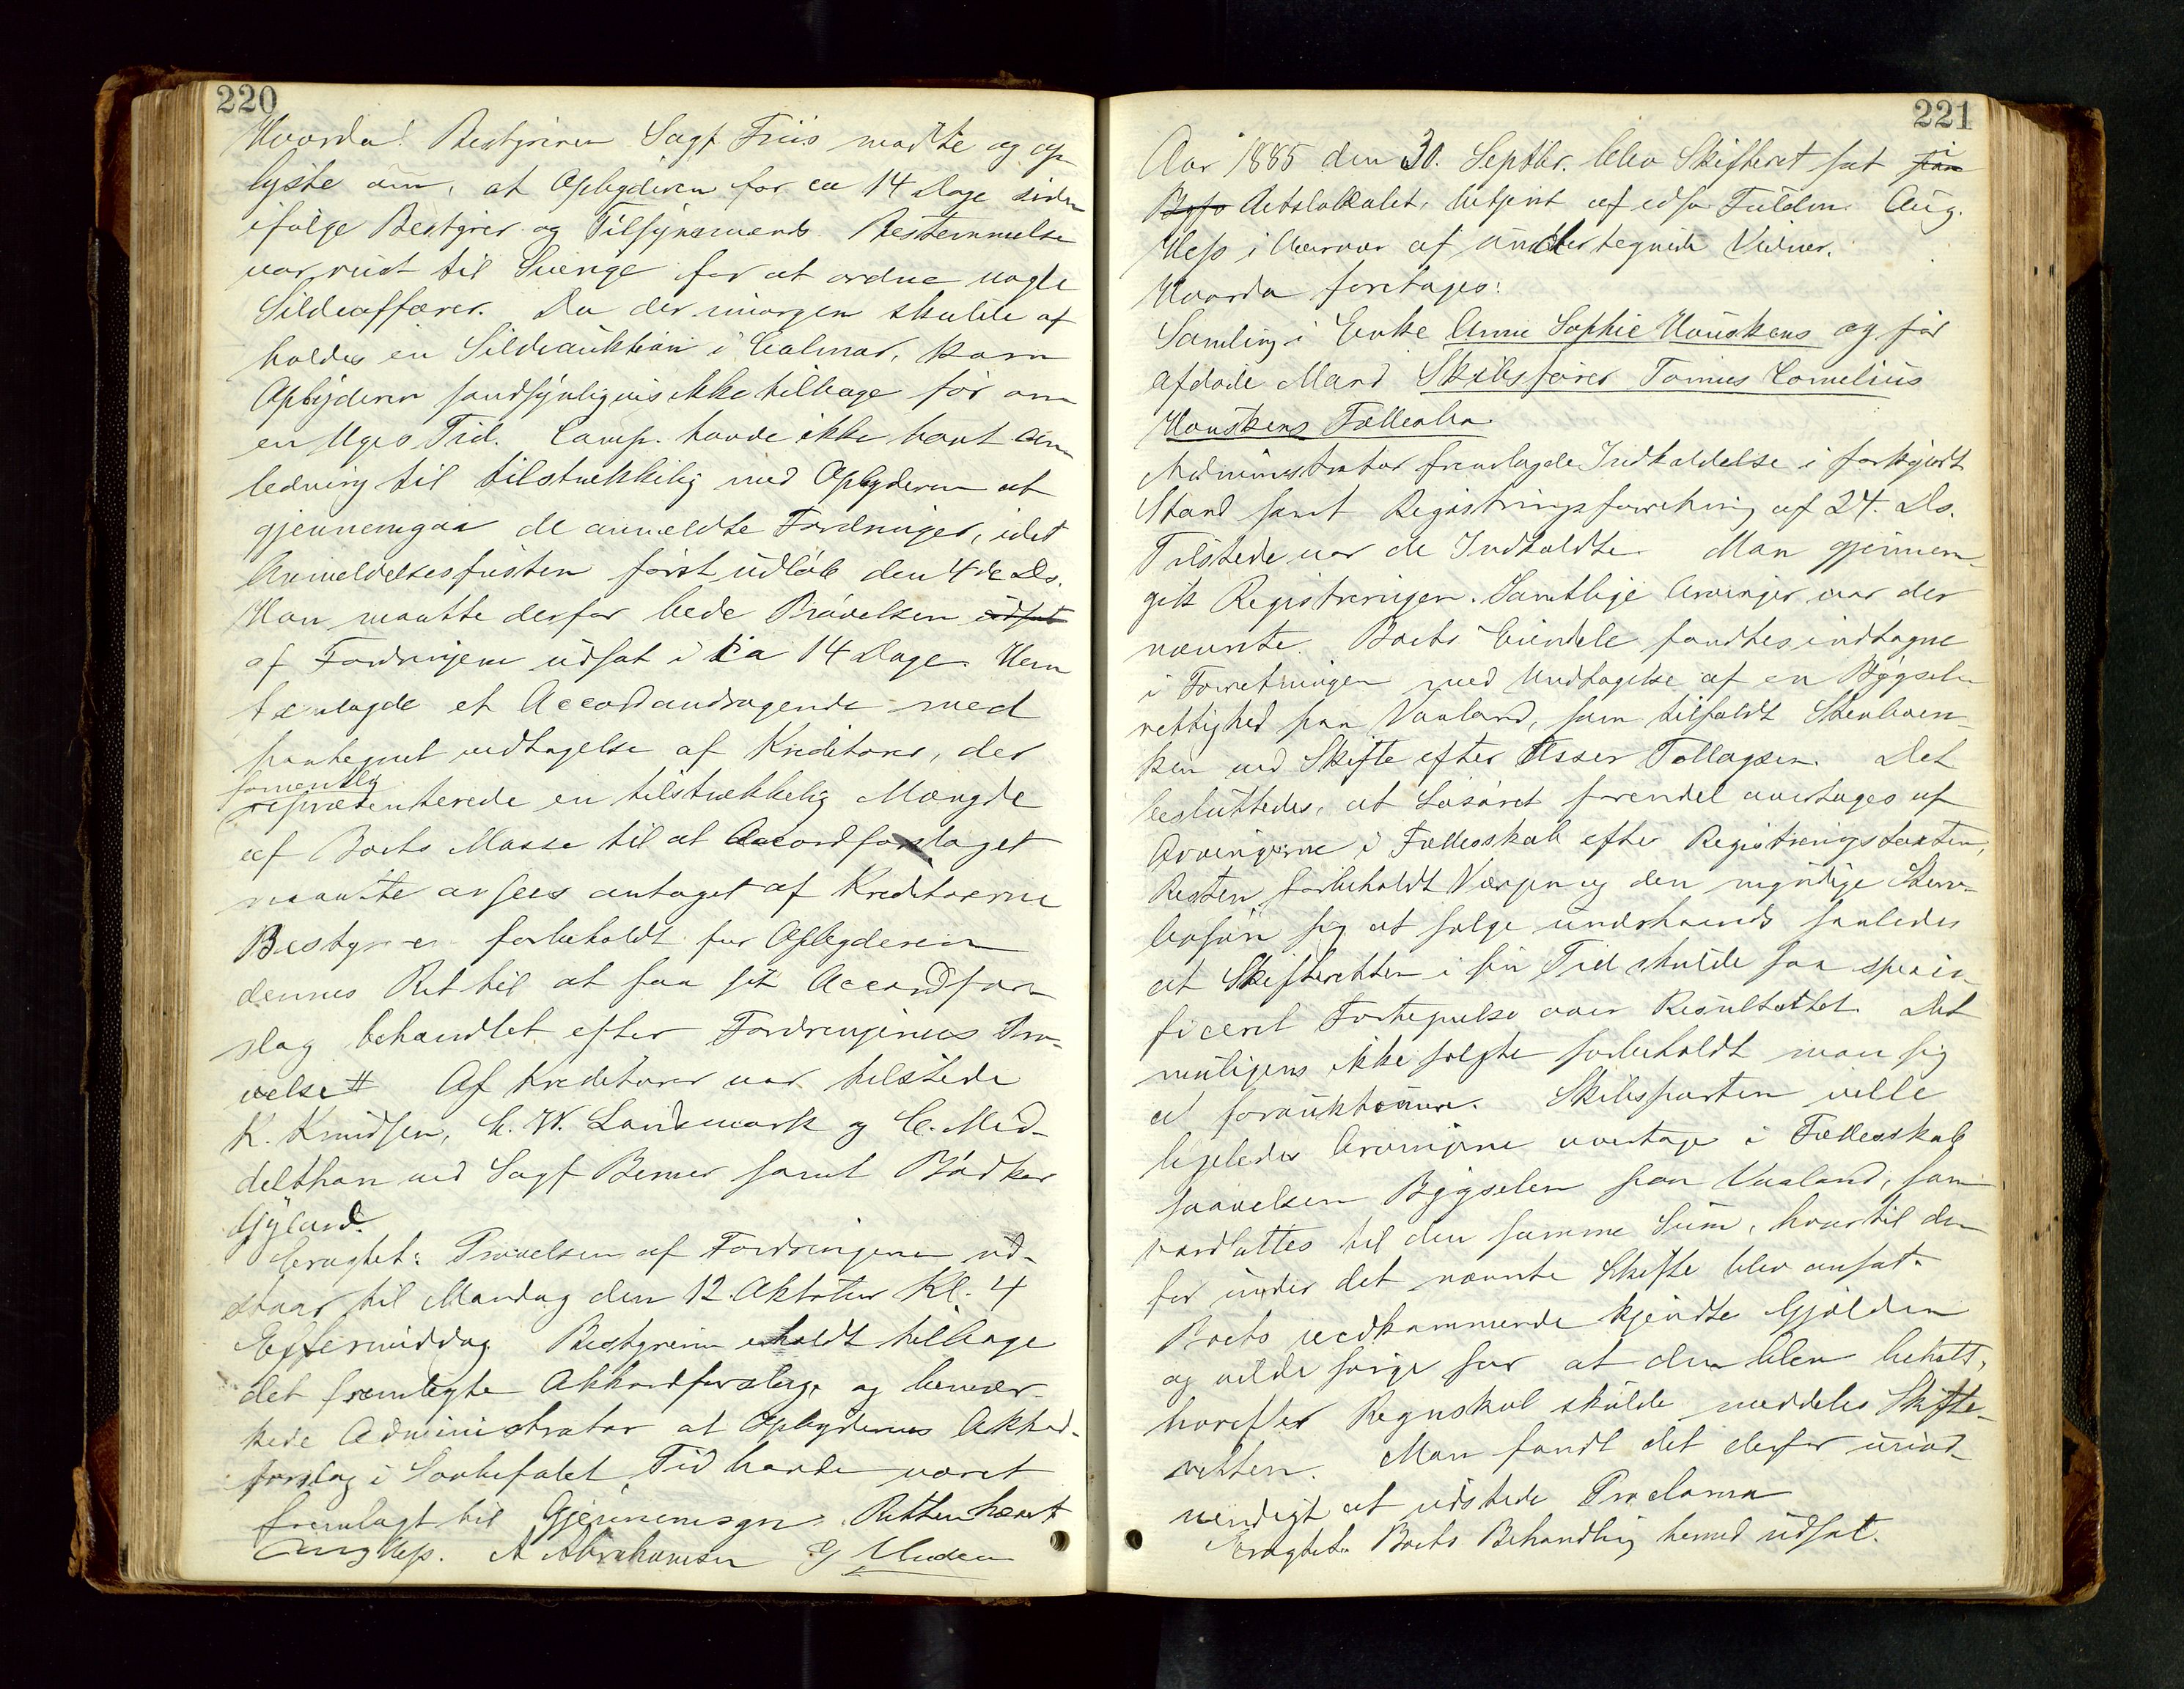 220
Hvorda! Bestyreren Sagf Friis mødte og op
lyste om, at Opbyderen for ca 14 Dage siden
ifølge Bestyrer og Tilsynsmænds Bestemmelse
var reist til Sverige for at ordne nogle
Sildeaffærer. Da der imorgen skulde af
holdes en Sildeauktion i Calmar, kom
Opbyderen sandsynligvis ikke tilbage før om
en Uges Tid. Comp. havde ikke havt An
ledning til tilstrækkelig med Opbyderen at
gjennemgaa de anmeldte Fordringer, idet
Anmeldelsesfristen først udløb den 4de Ds.
Han maatte derfor bede Prøvelsen udsat
af Fordringene udsat i ca 14 Dage. Han
fremlagde et Accordandragende med
paategnet vedtagelse af Kreditorer, der
formentlig
repræsenterede en tilstrækkelig Mængde
af Boets Masse til at Accordforslaget
maatte ansees antaget af Kreditorerne
Bestyreren forbeholdt for Opbyderen
dennes Ret til at faa sit Accordfor
slag behandlet efter Fordringernes Prø-
velse # Af Kreditorer var tilstede
K. Knudsen, C. W. Landmark og C. Mid-
delthon ved Sagf Bemer samt Bødker
Gyland.
Eragtet: Prøvelsen af Fordringerne ud-
staar til Mandag den 12. Oktober Kl. 4
Eftermiddag. Bestyreren erholdt tilbage
det fremlagte Akkordforslag, og bemær-
kede Administrator at Opbyderens Akkord-
forslag i Lovbefalet Tid havde været
fremlagt til Gjennemsyn. Retten hævet
Aug Hess. A Abrahamsen
221
Aar 1885 den 30. Septbr. blev Skifteret sat paa i
Byfo Retslokalet, betjent af edsv. Fuldm. Aug.
Hess i Nærvær af undertegnede Vidner.
Hvorda foretoges:
Samling i Enke Anne Sophie Houskens og før
afdøde Mand Skibsfører Tønnes Cornelius
Houskens Fællesbo.
Administrator fremlagde Indkaldelse i forkyndt
Stand samt Registreringsforretning af 24. Ds.
Tilstede var de Indkaldte. Man gjennem-
gik Registreringen. Samtlige Arvinger var der
nævnte. Boets Eiendele fandtes indtagne
i Forretningen med Undtagelse af en Bygsel-
rettighed paa Vaaland, som tilfaldt Stervboen-
ken ved Skifte efter Asser Tollagsen. Det
besluttedes, at Løsøret forendel overtoges af
Arvingerne i Fællesskab efter Registreringstaxten,
Resten forbeholdt Værgen og den myndige Sterv-
bosøn sig at sælge underhaands saaledes
at Skifteretten i sin Tid skulde faa speci-
ficeret Fortegnelse over Resultatet. Det
muligens ikke solgte forbeholdt man sig
at forauktionere. Skibsparten vilde
ligeledes Arvingerne overtage i Fællesskab
saavelsom Bygselen paa Vaaland, som
værdsattes til den samme Sum, hvortil den
før under det nævnte Skifte blev ansat.
Boets vedkommende kjendte Gjælden
og vilde sørge for at den blev betalt,
hvorefter Regnskab skulde meddeles Skifte-
retten. Man fandt det derfor unød-
vendigt at udstede Proclama
Eragtet. Boets Behandling hermed udsat.